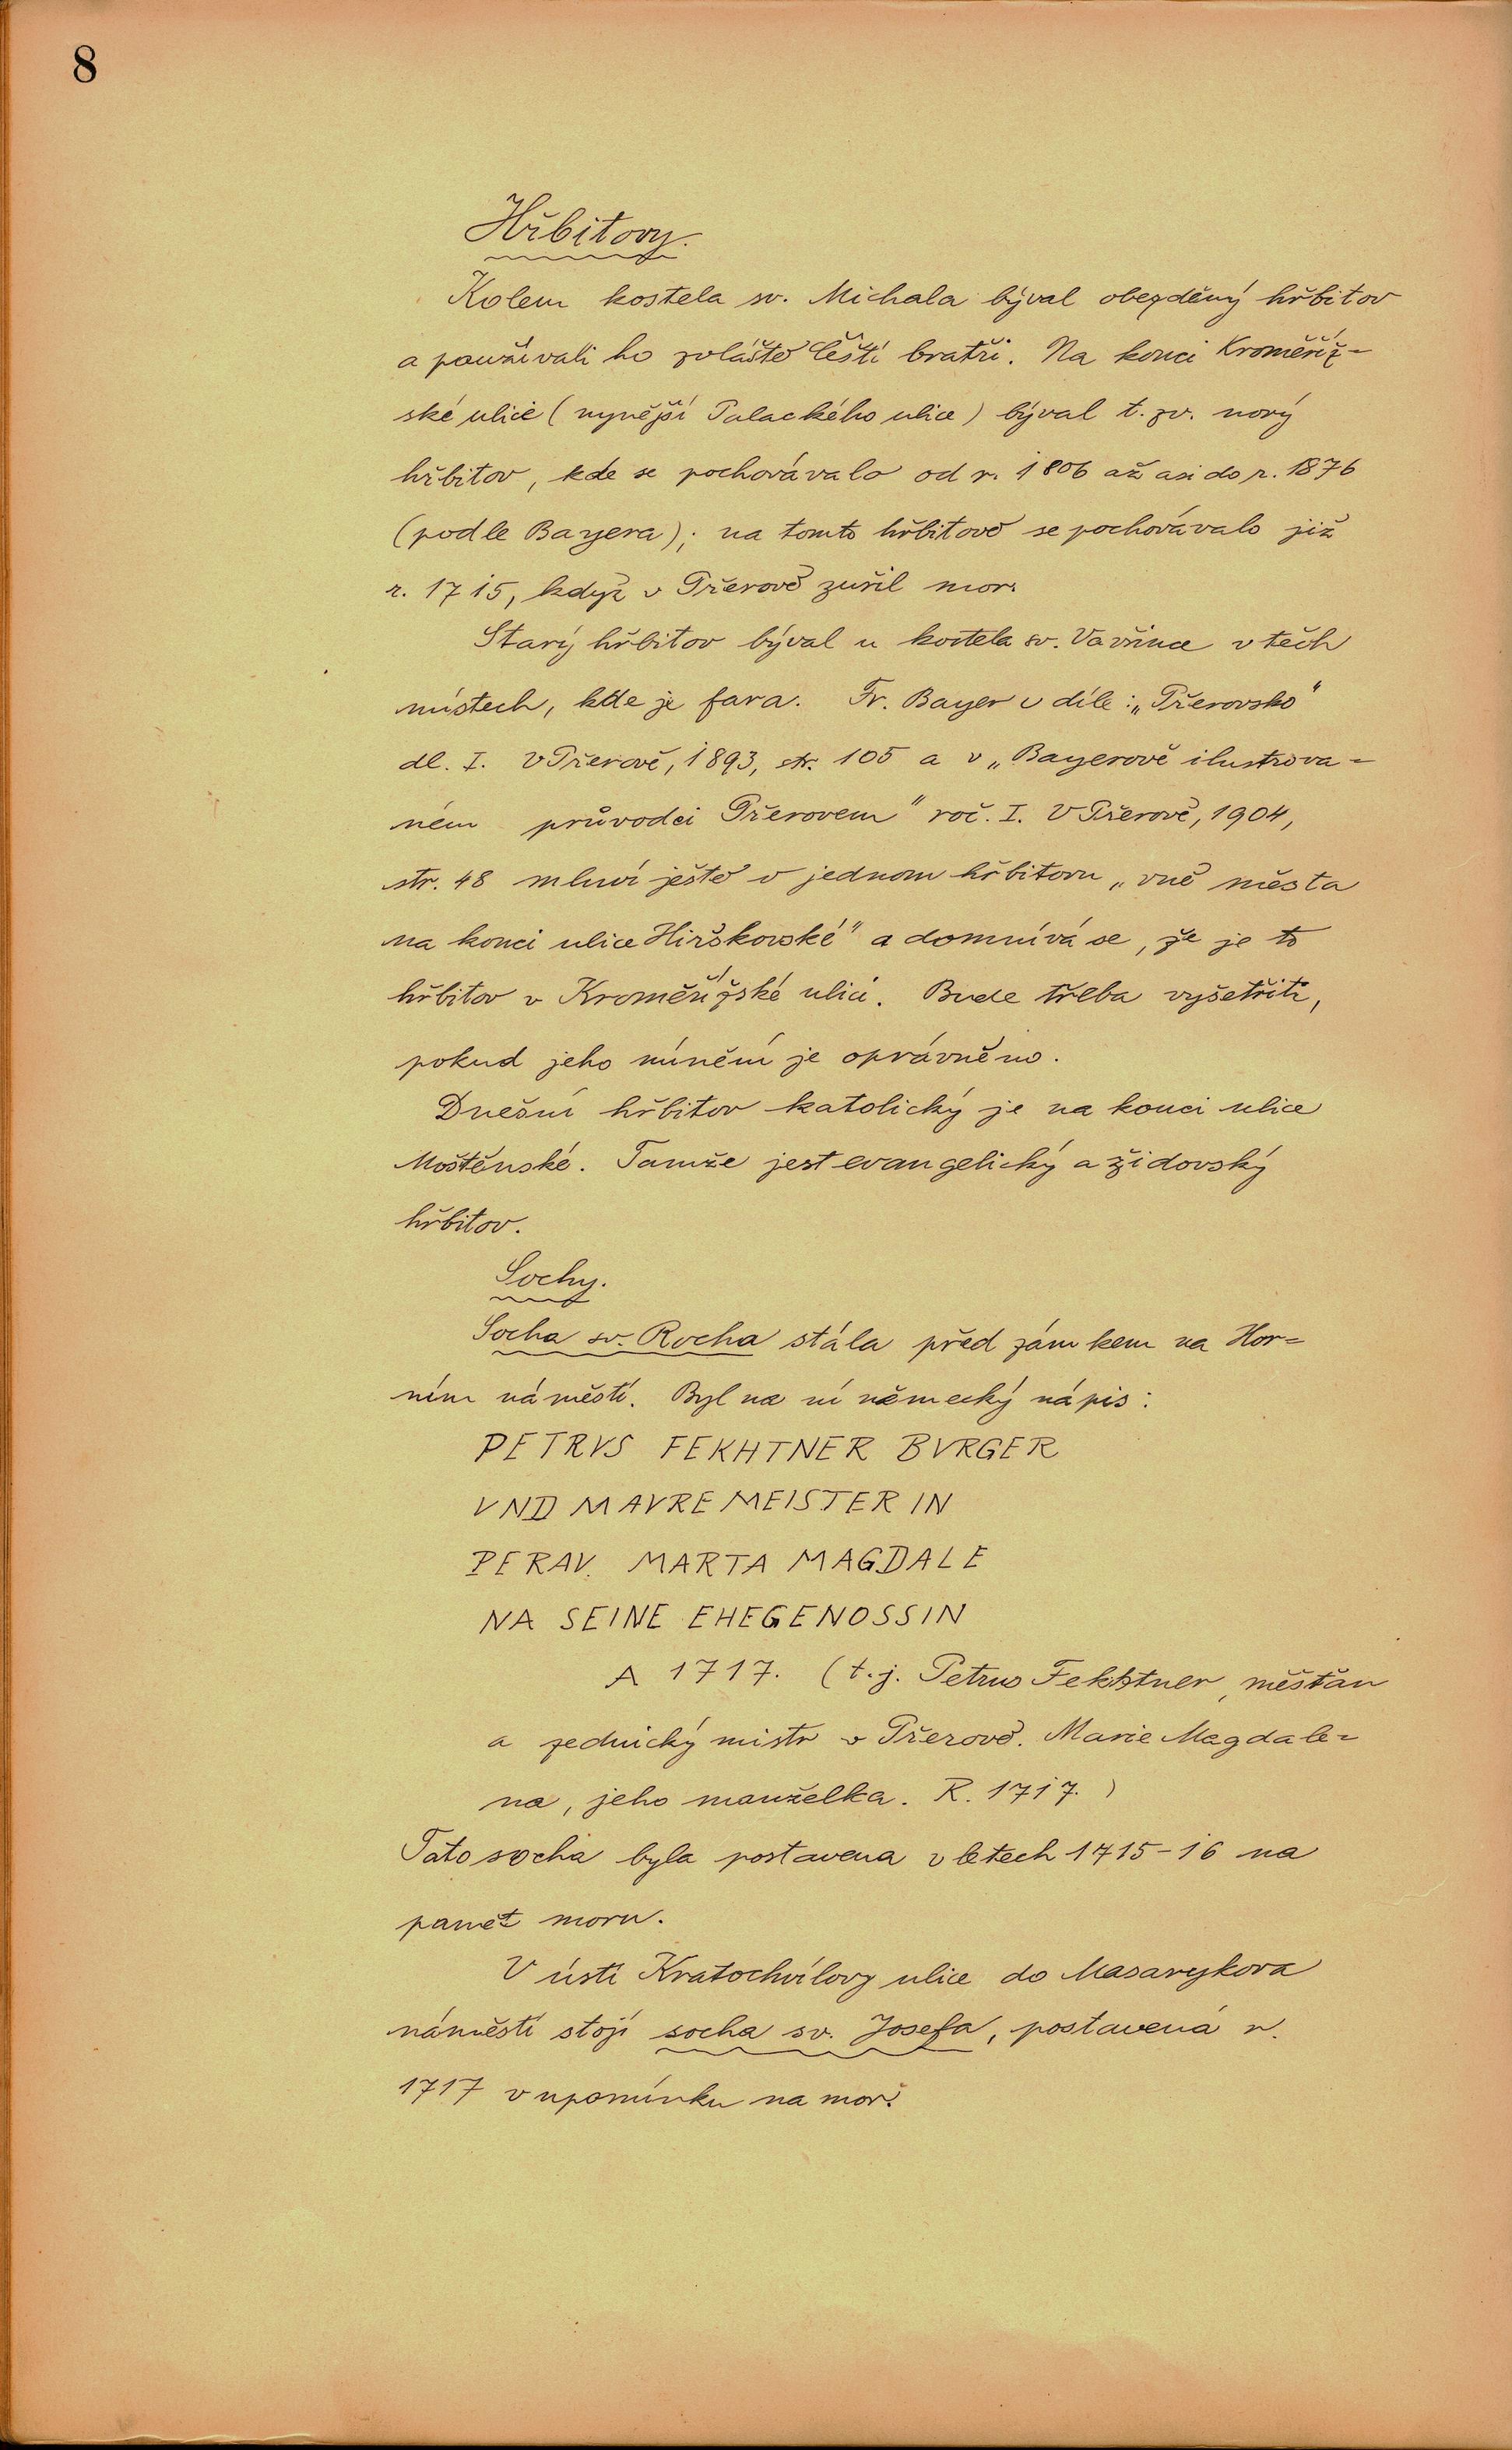 8
Hřbitovy.
Kolem kostela sv. Michala býval obezděný hřbitov
a používali ho zvláště Čeští bratři. Na konci Kroměříž-
ské ulice (nynější Palackého ulice) býval t. zv. nový
hřbitov, kde se pochovávalo od r. 1806 až asi do r. 1876
(podle Bayera); na tomto hřbitově se pochovávalo již
r. 1715, když v Přerově zuřil mor.
Starý hřbitov býval u kostela sv. Vavřince v těch
místech, kde je fara. Fr. Bayer v díle: „Přerovsko"
dl. I. V Přerově, 1893, str. 105 a v „Bayerově ilustrova-
ném průvodci Přerovem" roč. I. V Přerově, 1904,
str. 48 mluví ještě o jednom hřbitovu „vně města
na konci ulice Hirškovské" a domnívá se, že je to
hřbitov v Kroměřížské ulici. Bude třeba vyšetřiti,
pokud jeho mínění je oprávněno.
Dnešní hřbitov katolický je na konci ulice
Moštěnské. Tamže jest evangelický a židovský
hřbitov.
Sochy.
Socha sv. Rocha stála před zámkem na Hor-
ním náměstí. Byl na ní německý nápis:
PETRVS FEKHTNER BVRGER
VND MAVREMEISTER IN
PERAV. MARTA MAGDALE
NA SEINE EHEGENOSSIN
A 1717. (t. j. Petrus Fekhtner, měšťan
a zednický mistr v Přerově. Marie Magdale-
na, jeho manželka. R. 1717.)
Tato socha byla postavena v letech 1715-16 na
paměť moru.
V ústí Kratochvílovy ulice do Masarykova
náměstí stojí socha sv. Josefa, postavená r.
1717 v upomínku na mor.